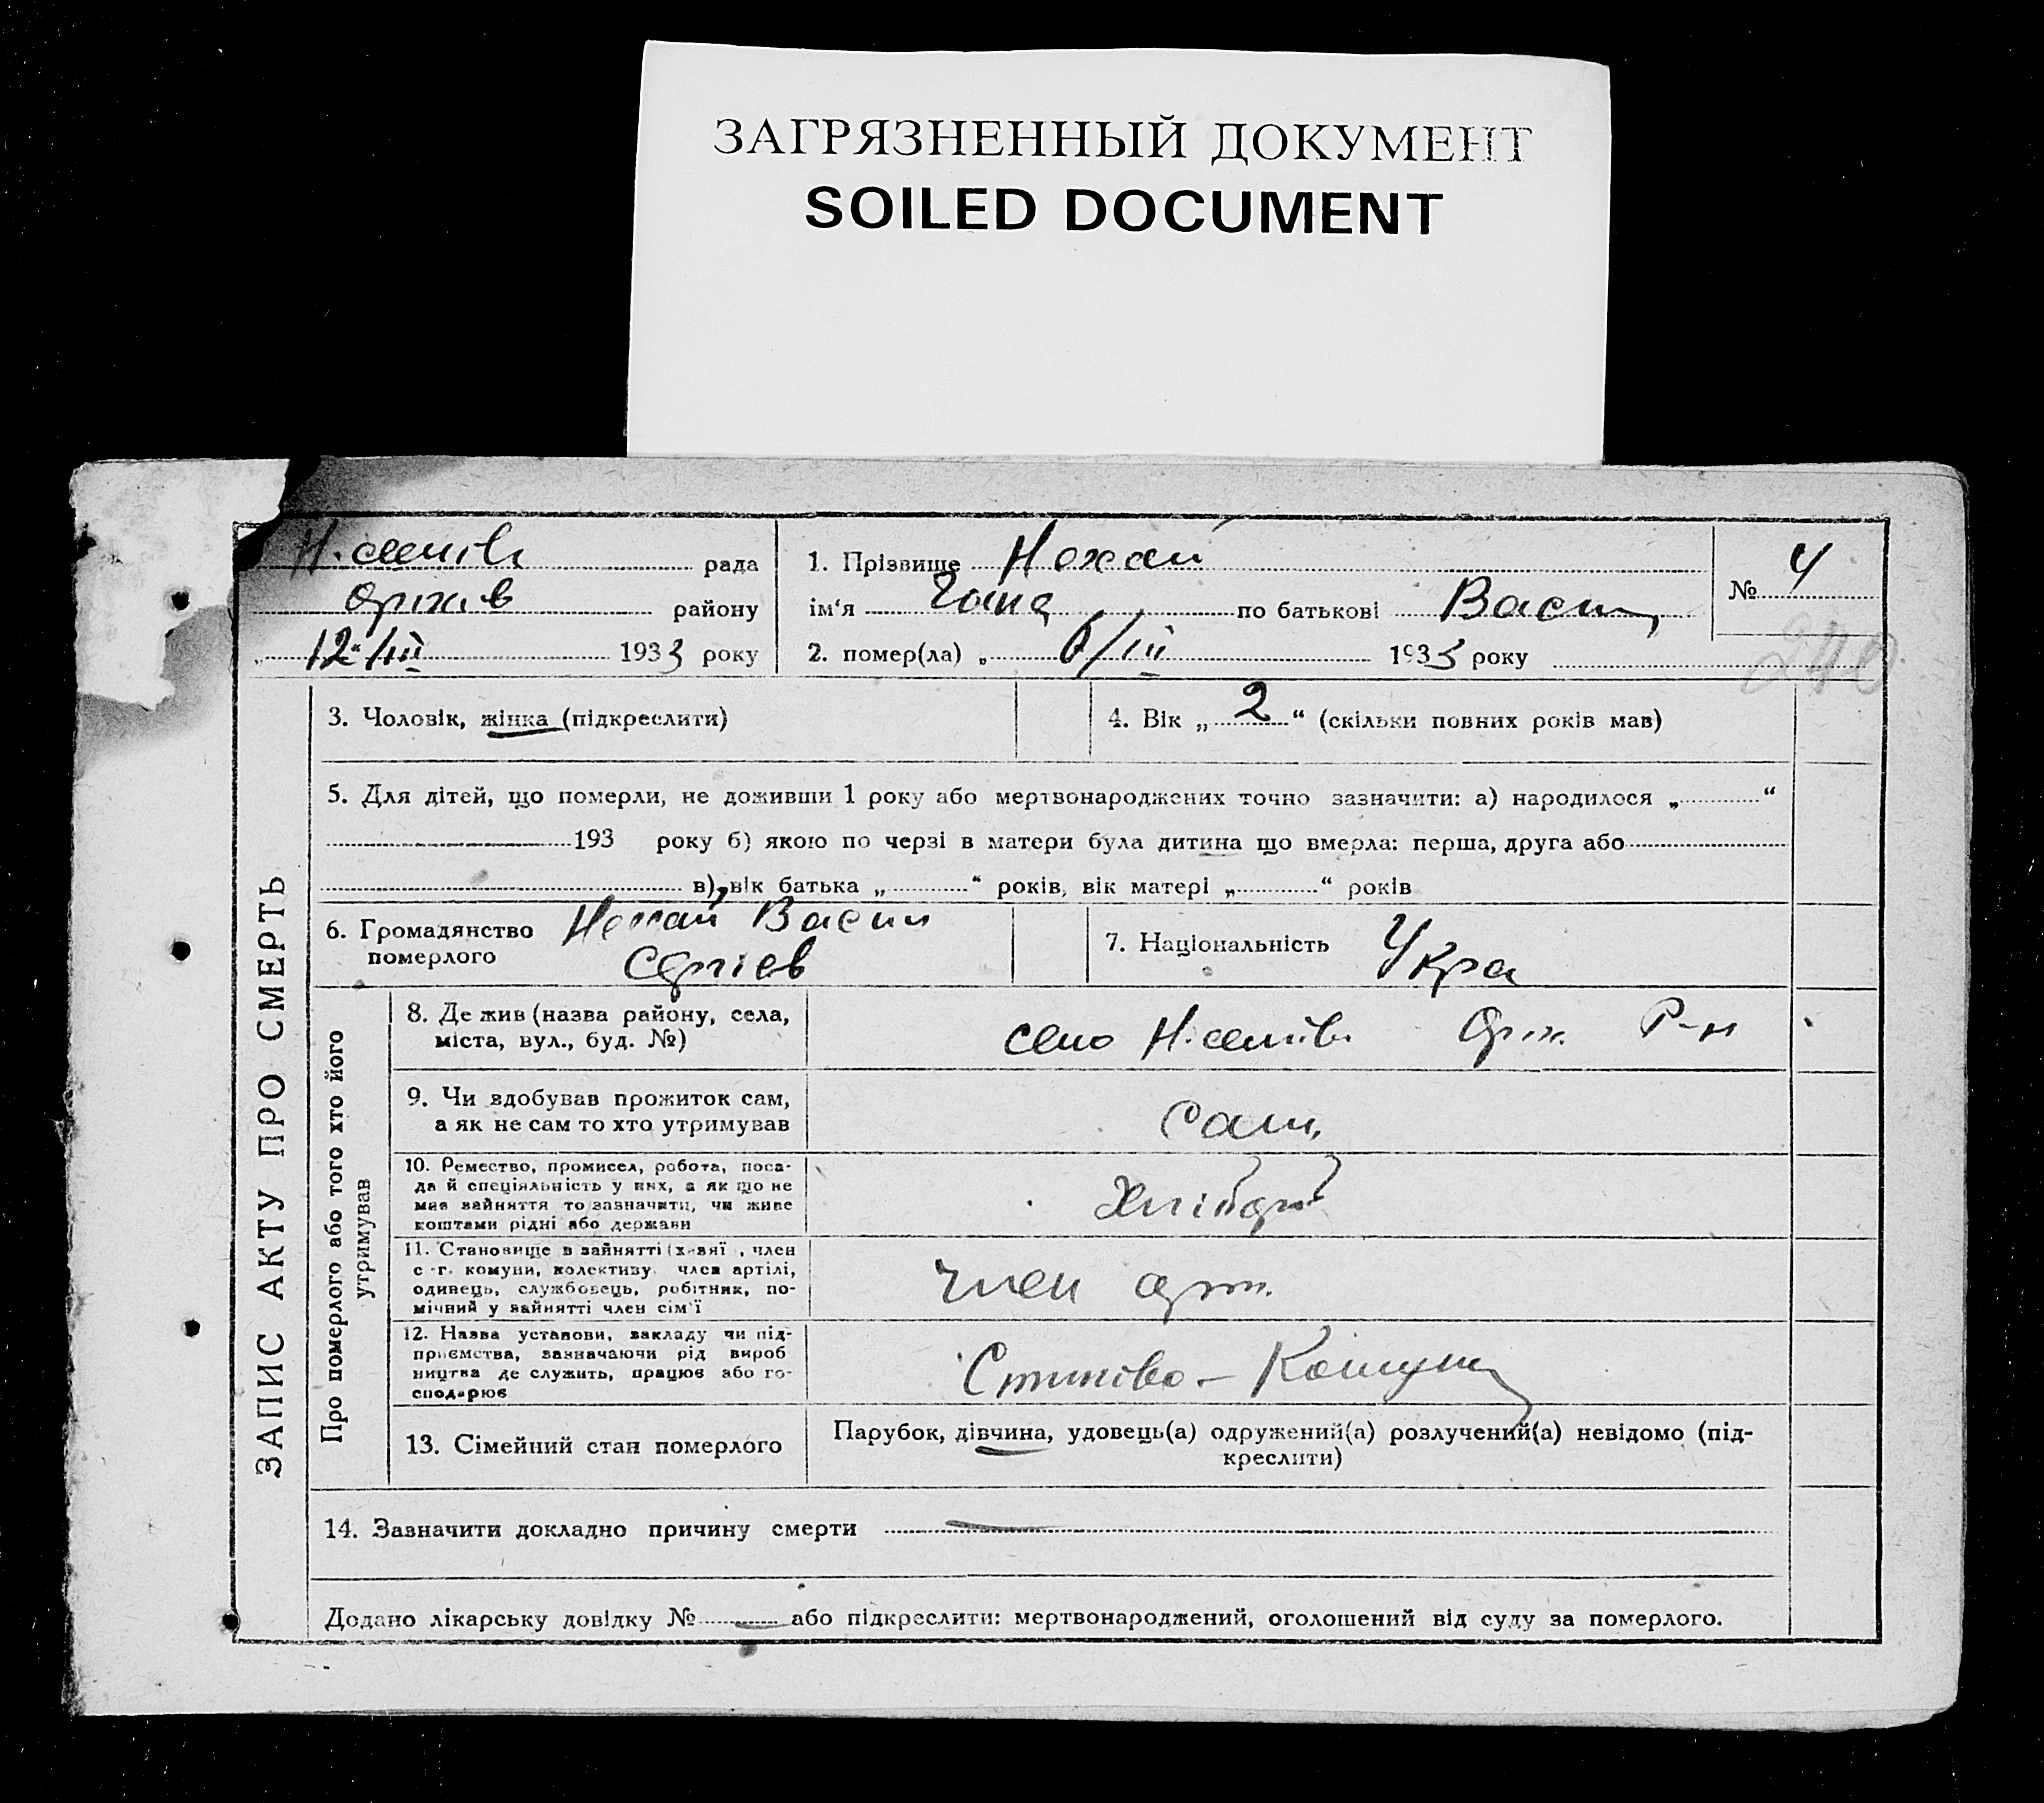 ЗАГРЯЗНЕННЫЙ ДОКУМЕНТ
SOILED DOCUMENT
рада
району
12/III 1933 року
1. Прізвище
№ 4
ім‘я по батькові Васил
2. помер(ла) „ 6/III 1933 року
240
ЗАПИС АКТУ ПРО СМЕРТЬ
3. Чоловік, жінка (підкреслити)
4. Вік „ 2 “ (скільки повних років мав)
5. Для дітей, що померли, не доживши 1 року або мертвонароджених точно зазначити: а) народилося „ “
193 року б) якою по черзі в матери була дитина що вмерла: перша, друга або
в) вік батька „ “ років, вік матері „ “ років
6. Громадянство Василь
померлого
7. Національність Укра
Про померлого або того хто його
утримував
8. Де жив (назва району, села,
міста, вул., буд. №)
село Р-н
9. Чи здобував прожиток сам,
а як не сам то хто утримував
сам
10. Ремество, промисел, робота, поса-
да й спеціяльність у них, а як що не
має зайняття то зазначити, чи живе
коштами рідні або держави
Хлібороб
11. Становище в зайнятті (хазяї , член
с.-г. комуни, колективу член артілі,
одинець, службовець, робітник, по-
мічний у зайнятті член сім‘ї
член арт.
12. Назва установи, закладу чи під-
приємства, зазначаючи рід вироб
ництва де служить, працює або го-
сподарює
13. Сімейний стан померлого
Парубок, дівчина, удовець(а) одружений(а) розлучений(а) невідомо (під-
креслити)
14. Зазначити докладно причину смерти
Додано лікарську довідку № або підкреслити: мертвонароджений, оголошений від суду за померлого.